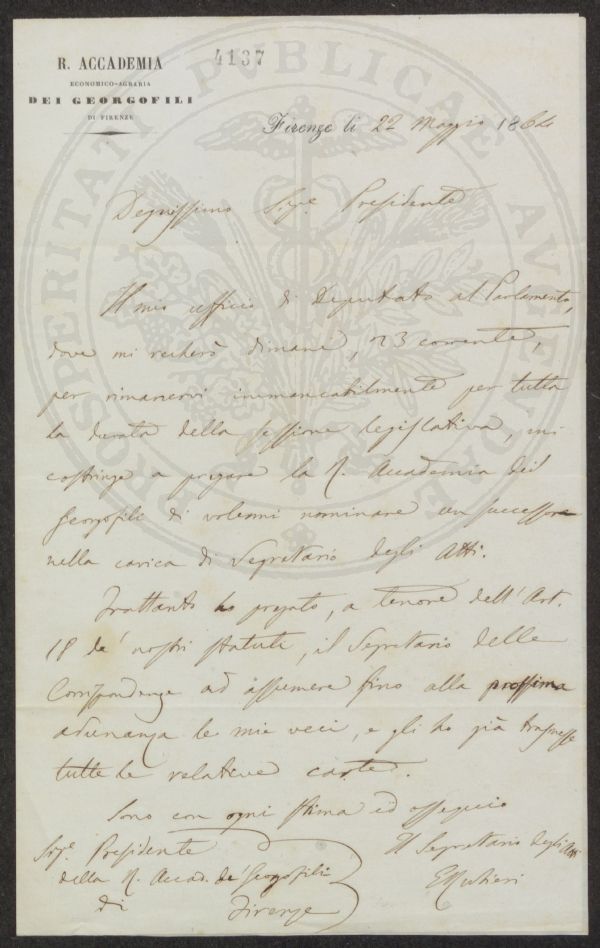 R. ACCADEMIA
ECONOMICO-AGRARIA
DEI GEORGOFILI
DI FIRENZE
4137
Firenze li 22 Maggio 1864
Degnissimo Sigr. Presidente
Il mio ufficio di Deputato al Parlamento,
dove mi recherò dimane, 23 corrente,
per rimanervi immancabilmente per tutta
la durata della sessione legislativa, mi
costringe a pregare la R. Accademia dei
Georgofili di volermi nominare un successore
nella carica di Segretario degli Atti.
Frattanto ho pregato, a tenore dell'Art.
18 de' nostri statuti, il Segretario delle
Corrispondenze ad assumere fino alla prossima
adunanza le mie veci, e gli ho già trasmesse
tutte le relative carte.
Sono con ogni stima ed ossequio
Sigr. Presidente
della R. Accad. de' Georgofili
di Firenze
Il Segretario degli Atti
PROSPERITATI PUBLICAE AUGENDAE